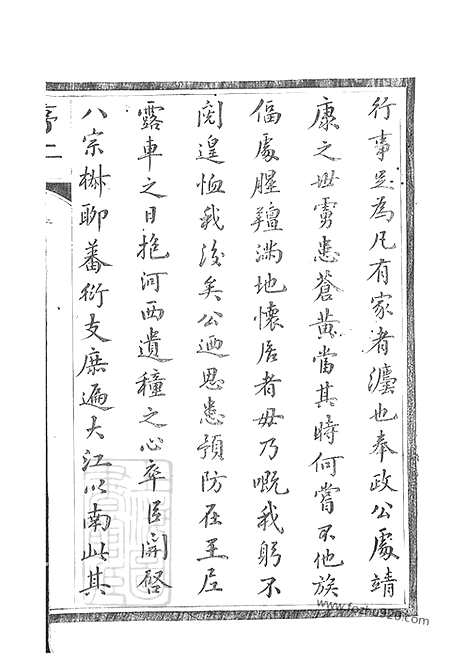 行事足為凡有家者瀍也奉政公處靖
康之世雱患蒼黄當其時何嘗不他族
偪處腥羶滿地懷居者毋乃嘅我躬不
閱遑恤我後矣公迺思患預防在王
露車之日抱河西遺種之心卒臣開啓
八宗樹聊蕃衍支庶遍大江以南此其
序二
www.fozhu920.com